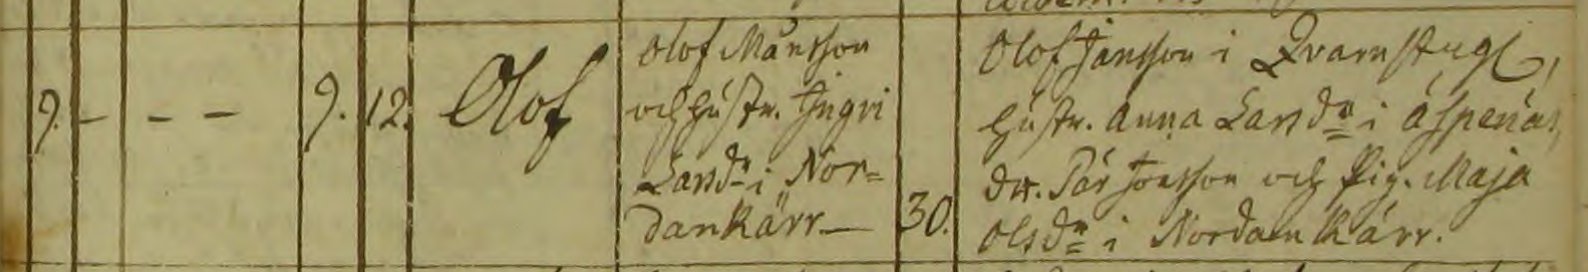 9. – – – 9. 12. Olof
Olof Månsson
och hustr. Ingri
Larsdr i Nor=
dankärr — 30.
Olof Jansson i Qvarnstug,
hustr. Anna Larsdr i Aspenäs,
dr. Pär Jonsson och Pig. Maja
Olsdr i Nordankärr.